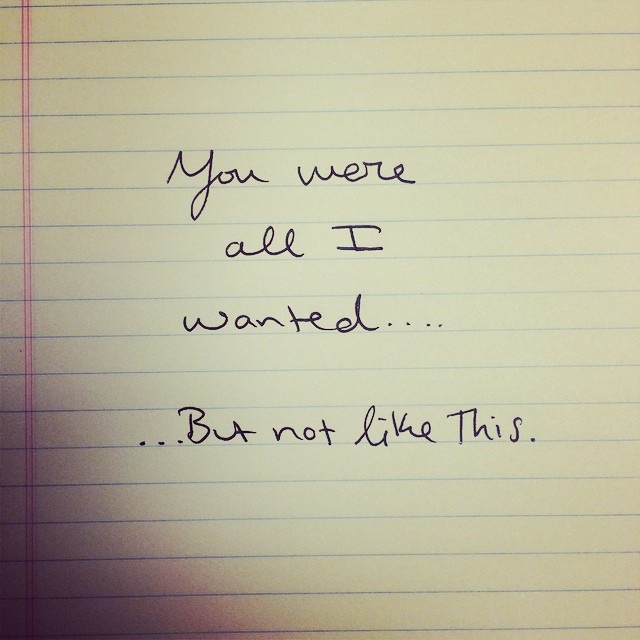 You were
all I
wanted....
...But not like This.